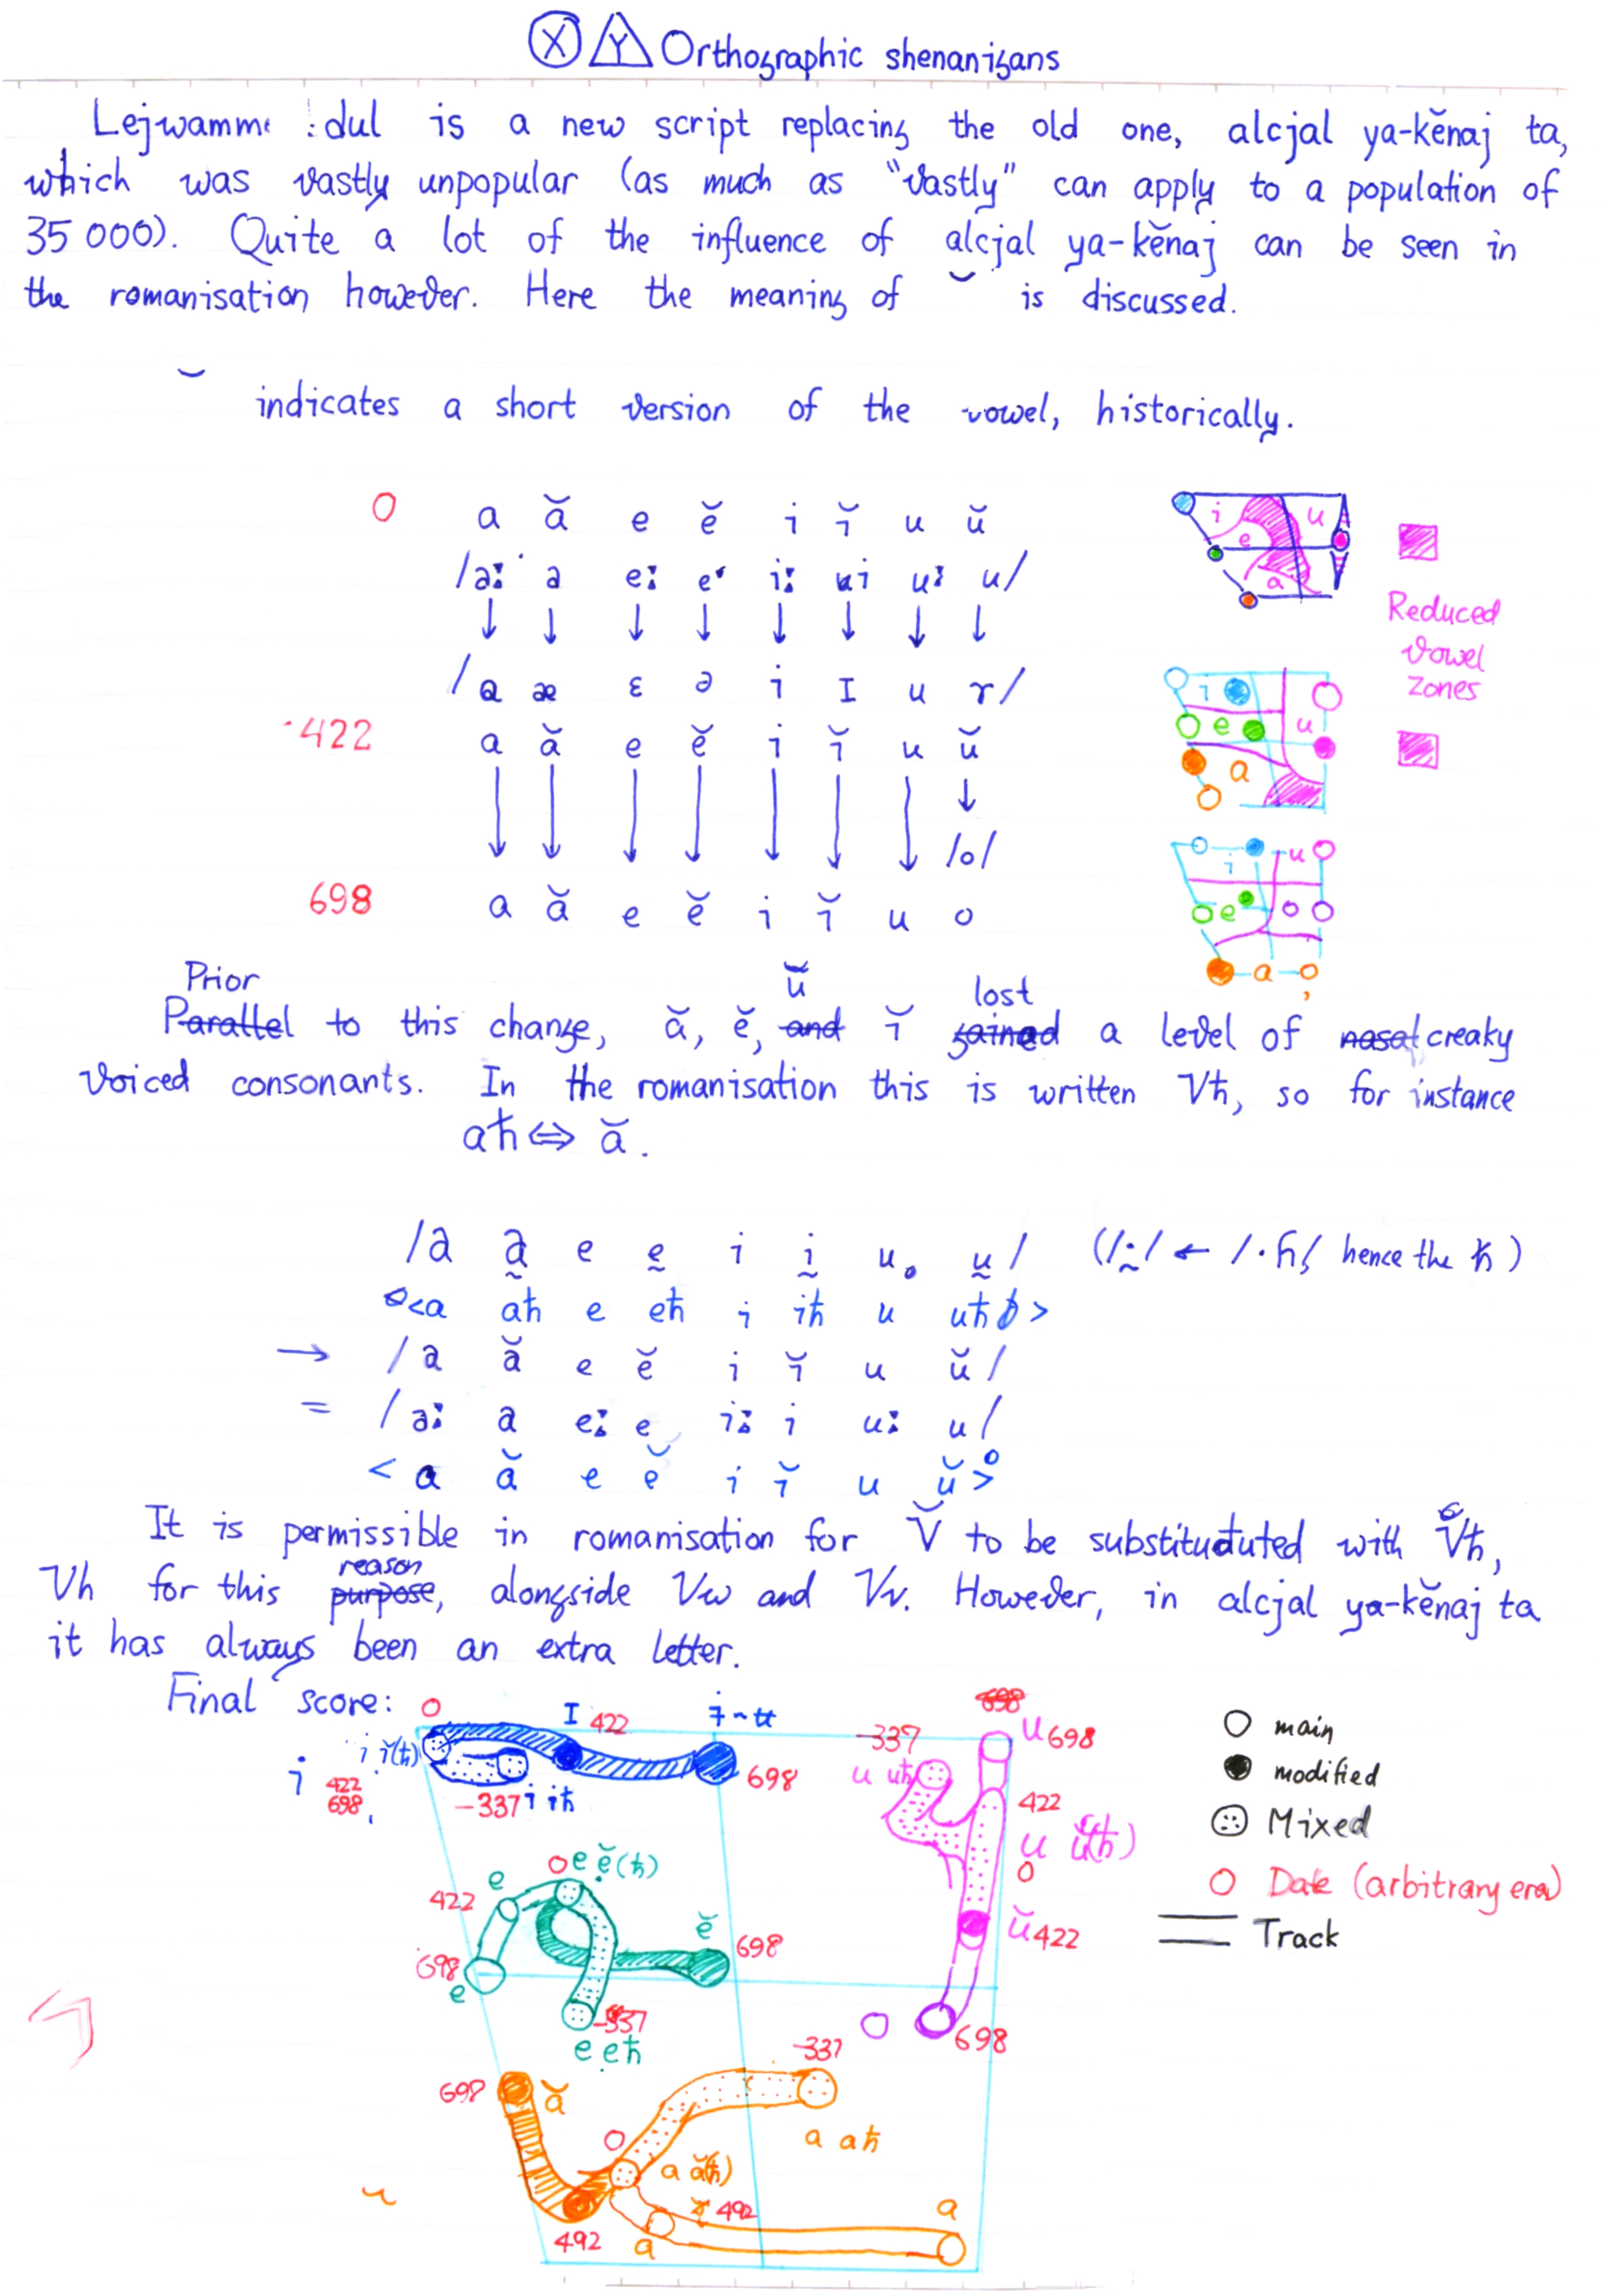 Ⓧ Y Orthographic shenanigans
Lejwamm :dul is a new script replacing the old one, alcjal ya-kĕnaj ta,
which was vastly unpopular (as much as "vastly" can apply to a population of
35 000). Quite a lot of the influence of alcjal ya-kĕnaj can be seen in
the romanisation however. Here the meaning of ˘ is discussed.
˘ indicates a short version of the vowel, historically.
0 a ă e ĕ i ĭ u ŭ
/a: a e: e i: i u: u/
↓ ↓ ↓ ↓ ↓ ↓ ↓ ↓
/a æ ɛ ə i I u ɤ/
422 a ă e ĕ i ĭ u ŭ
↓ ↓ ↓ ↓ ↓ ↓ ↓ ↓
/o/
698 a ă e ĕ i ĭ u o
i e a u
Reduced
vowel
zones
i e a u
i u e o a
Prior ŭ lost
Parallel to this change, ă, ĕ, and ĭ gained a level of nasal creaky
voiced consonants. In the romanisation this is written Vħ, so for instance
aħ ⇔ ă.
/a a̰ e ḛ i ḭ u ṵ/ (/.̰/ ← /·ɦ/, hence the ħ)
<a aħ e eħ i iħ u uħ>
→ /a ă e ĕ i ĭ u ŭ/
= /a: a e: e i: i u: u/
<a ă e ĕ i ĭ u ŭ>
It is permissible in romanisation for V̆ to be substitututed with V̆ħ,
reason
Vh for this purpose, alongside Vw and Vv. However, in alcjal ya-kĕnaj ta
it has always been an extra letter.
Final score:
0 I 422 ɨ~ʉ 698
i ĭ(ħ)
i 422 698
-337 i iħ
698
-337 u uħ
u 698
422
u ŭ(ħ)
0
ŭ 422
o 698
0 e ĕ(ħ)
e 422
698 e
ĕ 698
-337
e eħ
698 ă
-337
a aħ
0 a ă(ħ)
492
492 a
a
main
modified
Mixed
Date (arbitrary era)
Track